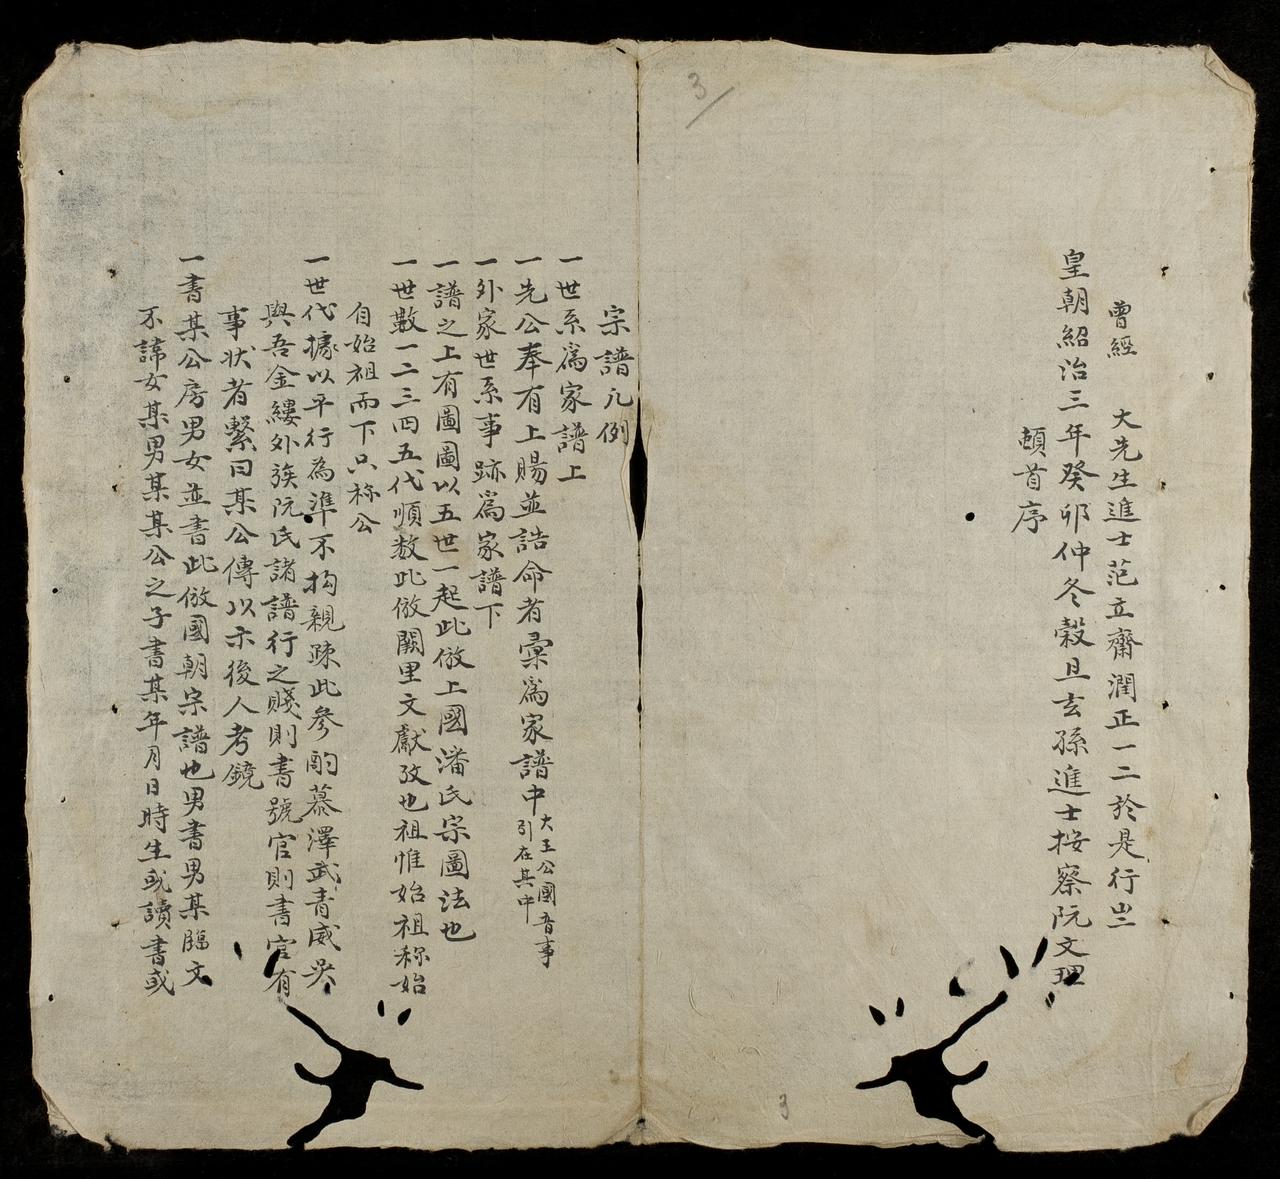 3
曾經　大先生進士范立齋潤正一二於是行𡾵
皇朝紹治三年癸卯仲冬穀旦玄孫進士按察阮文理
頓首序
3
宗譜凡例
一世系爲家譜上
一先公奉有上賜並誥命者彙爲家譜中大王公國音事引在其中
一外家世系事跡爲家譜下
一譜之上有圖圖以五世一起此倣上國潘氏宗圖法也
一世數一二三四五代順数此倣闕里文獻攷也祖惟始祖称始
自始祖而下只称公
一世代據以平行為準不拘親疎此參酌慕澤武青威吳
與吾金縷外族阮氏諸譜行之賤則書號官則書官有
事状者繫曰某公傳以示後人考鏡
一書某公房男女並書此倣國朝宗譜也男書男某臨文
不諱女某男某某公之子書某年月日時生或讀書或